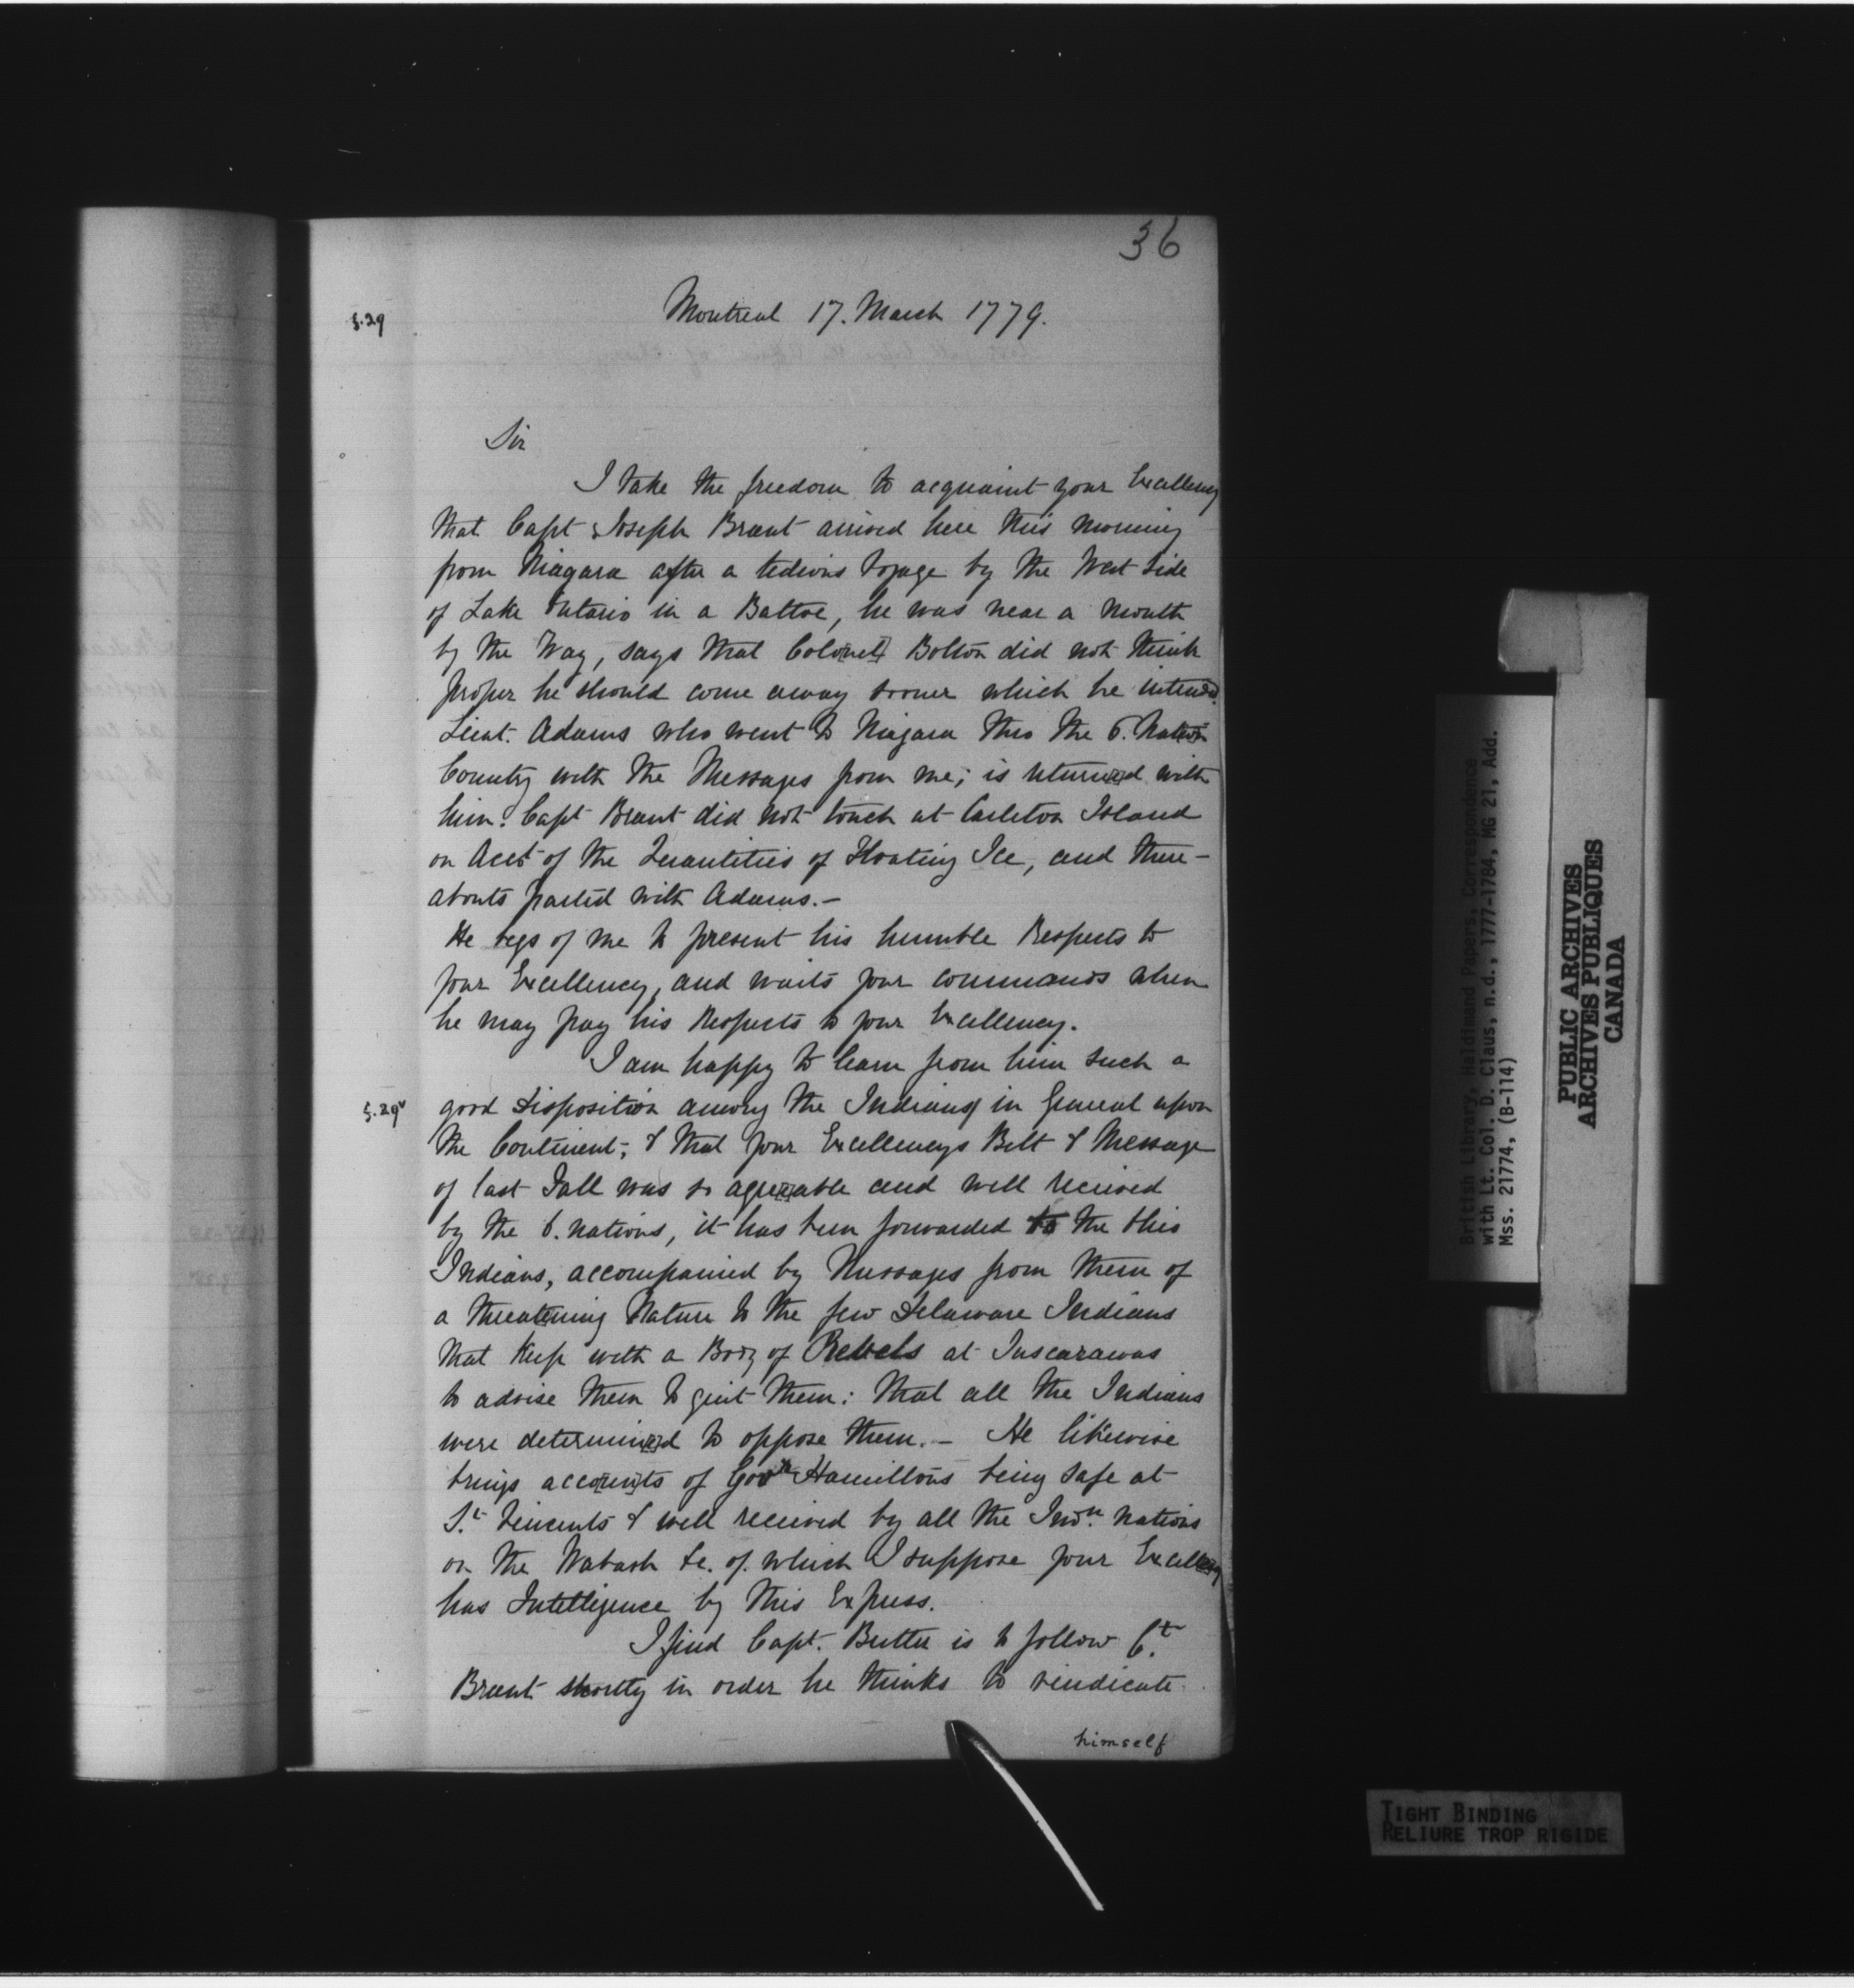 36
f.29
Montreal 17. March 1779.
Sir
I take the freedom to acquaint your Excellency
that Capt Joseph Brant arrived here this morning
from Niagara after a tedious Voyage by the West Side
of Lake Ontario in a Battoe, he was near a month
by the Way, says that Colonel Bolton did not think
proper he should come away sooner which he intended.
Lieut. Adams who went to Niagara thro the 6. Nation
Country with the Messages from me; is returned with
him. Capt Brant did not touch at Carleton Island
on Acct of the Quantities of Floating Ice, and there-
abouts parted with Adams.-
He begs of me to present his humble Respects to
your Excellency, and waits your commands when
he may pay his Respects to your Excellency.
I am happy to learn from him such a
f.29v
good Disposition among the Indians in General upon
the Continent; & that your Excellencys Belt & Message
of last Fall was so agreeable and well received
by the 6. nations, it has been forwarded to the Ohio
Indians, accompanied by Messages from them of
a threatening Nature to the few Delaware Indians
that keep with a Body of Rebels at Tuscarawas
to advise them to quit them: that all the Indians
were determined to oppose them.- He likewise
brings accounts of Govr Hamiltons being safe at
St. Vincents & well received by all the Indn. nations
on the Wabash &c. of which I suppose your Excellency
has Intelligence by this Express.
I find Capt. Butler is to follow Ct.
Brant shortly in order he thinks to vindicate
himself
British Library, Haldimand Papers, Correspondence
with Lt. Col. D. Claus, n.d., 1777-1784, MG 21, Add.
Mss. 21774, (B-114)
PUBLIC ARCHIVES
ARCHIVES PUBLIQUES
CANADA
TIGHT BINDING
RELIURE TROP RIGIDE